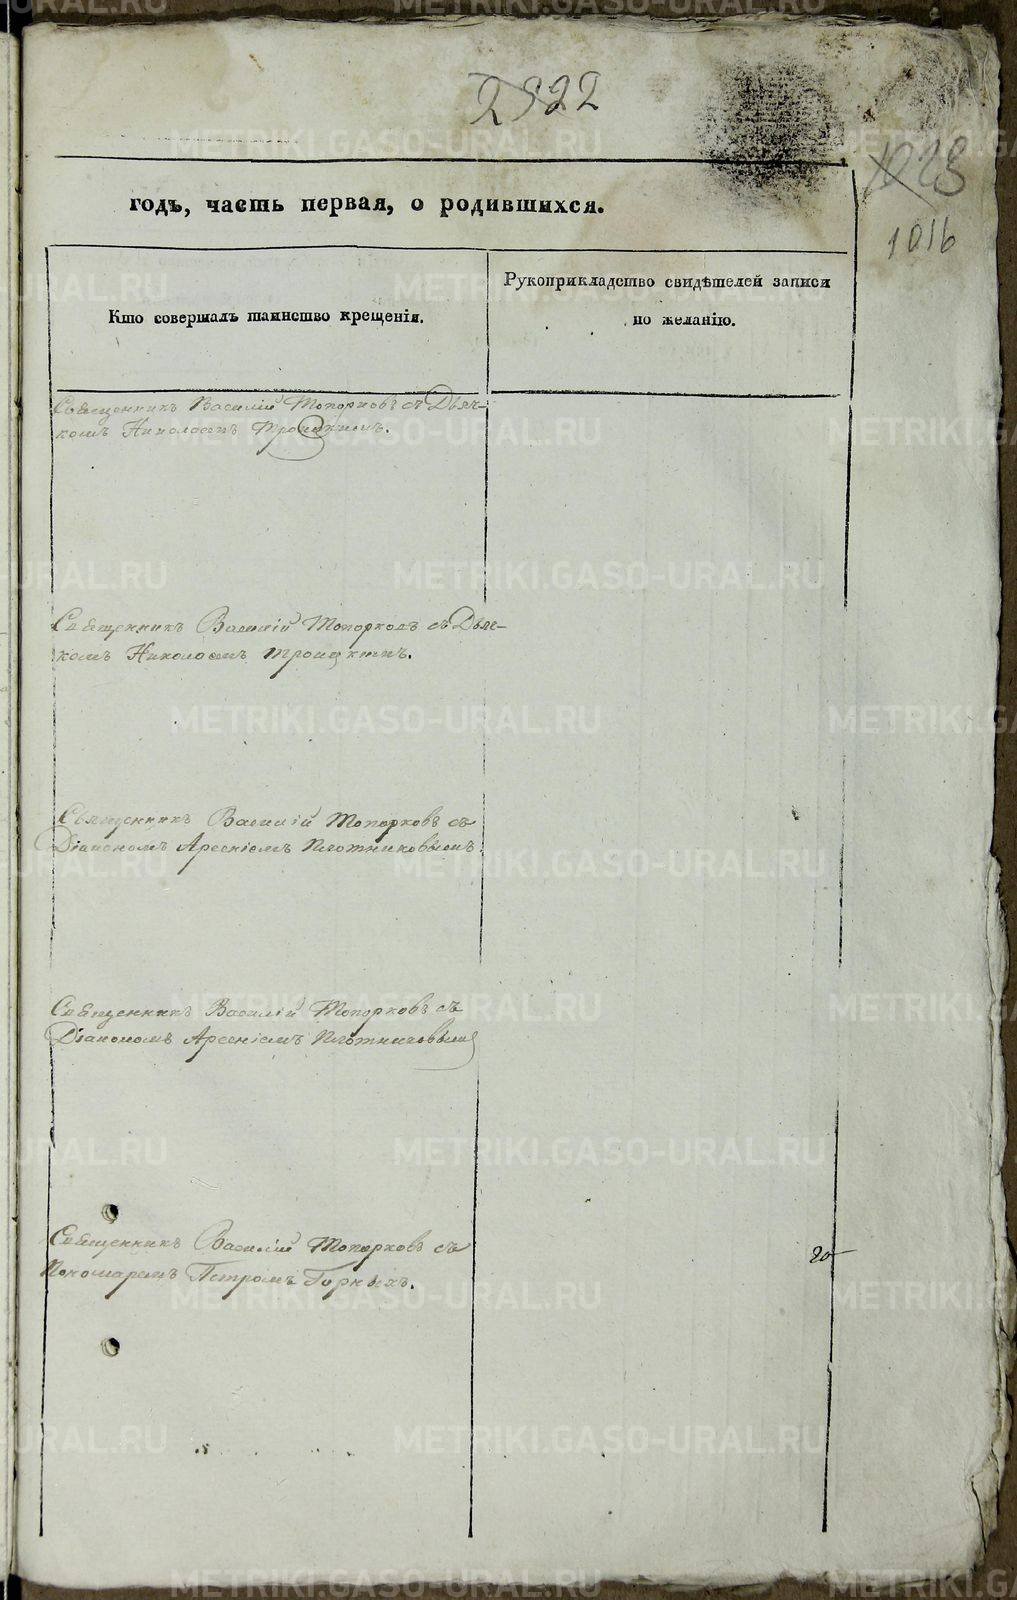 2922
1023
1016
годъ, часть первая, о родившихся.
Кто совершалъ таинство крещенія.
Рукоприкладство свидѣтелей записи
по желанію.
Священникъ Василій Топорковъ съ Дьяч-
комъ Николаемъ Троицкимъ.
Священникъ Василій Топорковъ съ Дьяч-
комъ Николаемъ Троицкимъ.
Священникъ Василій Топорковъ съ
Діакономъ Арсеніемъ Плотниковымъ.
Священникъ Василій Топорковъ съ
Діакономъ Арсеніемъ Плотниковымъ
Священникъ Василій Топорковъ съ
Пономаремъ Петромъ Горныхъ.
20
METRIKI.GASO-URAL.RU